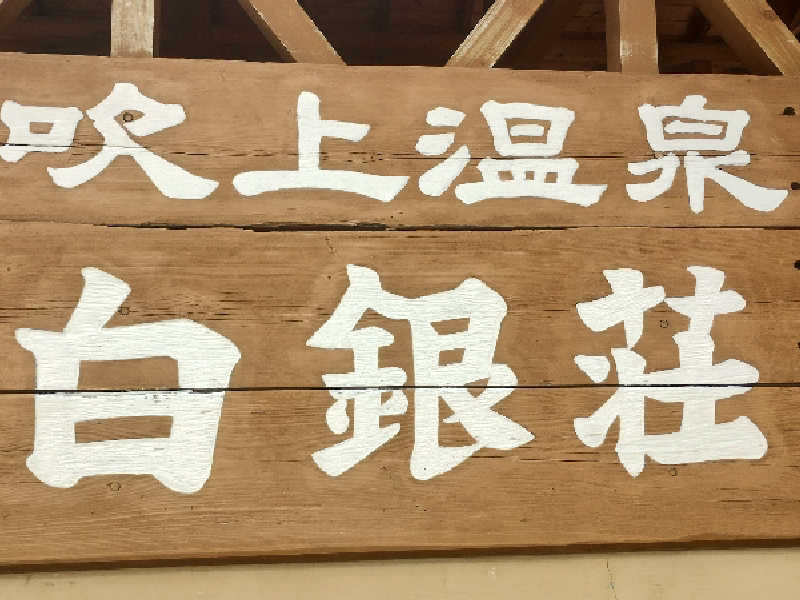 吹上温泉
白銀荘